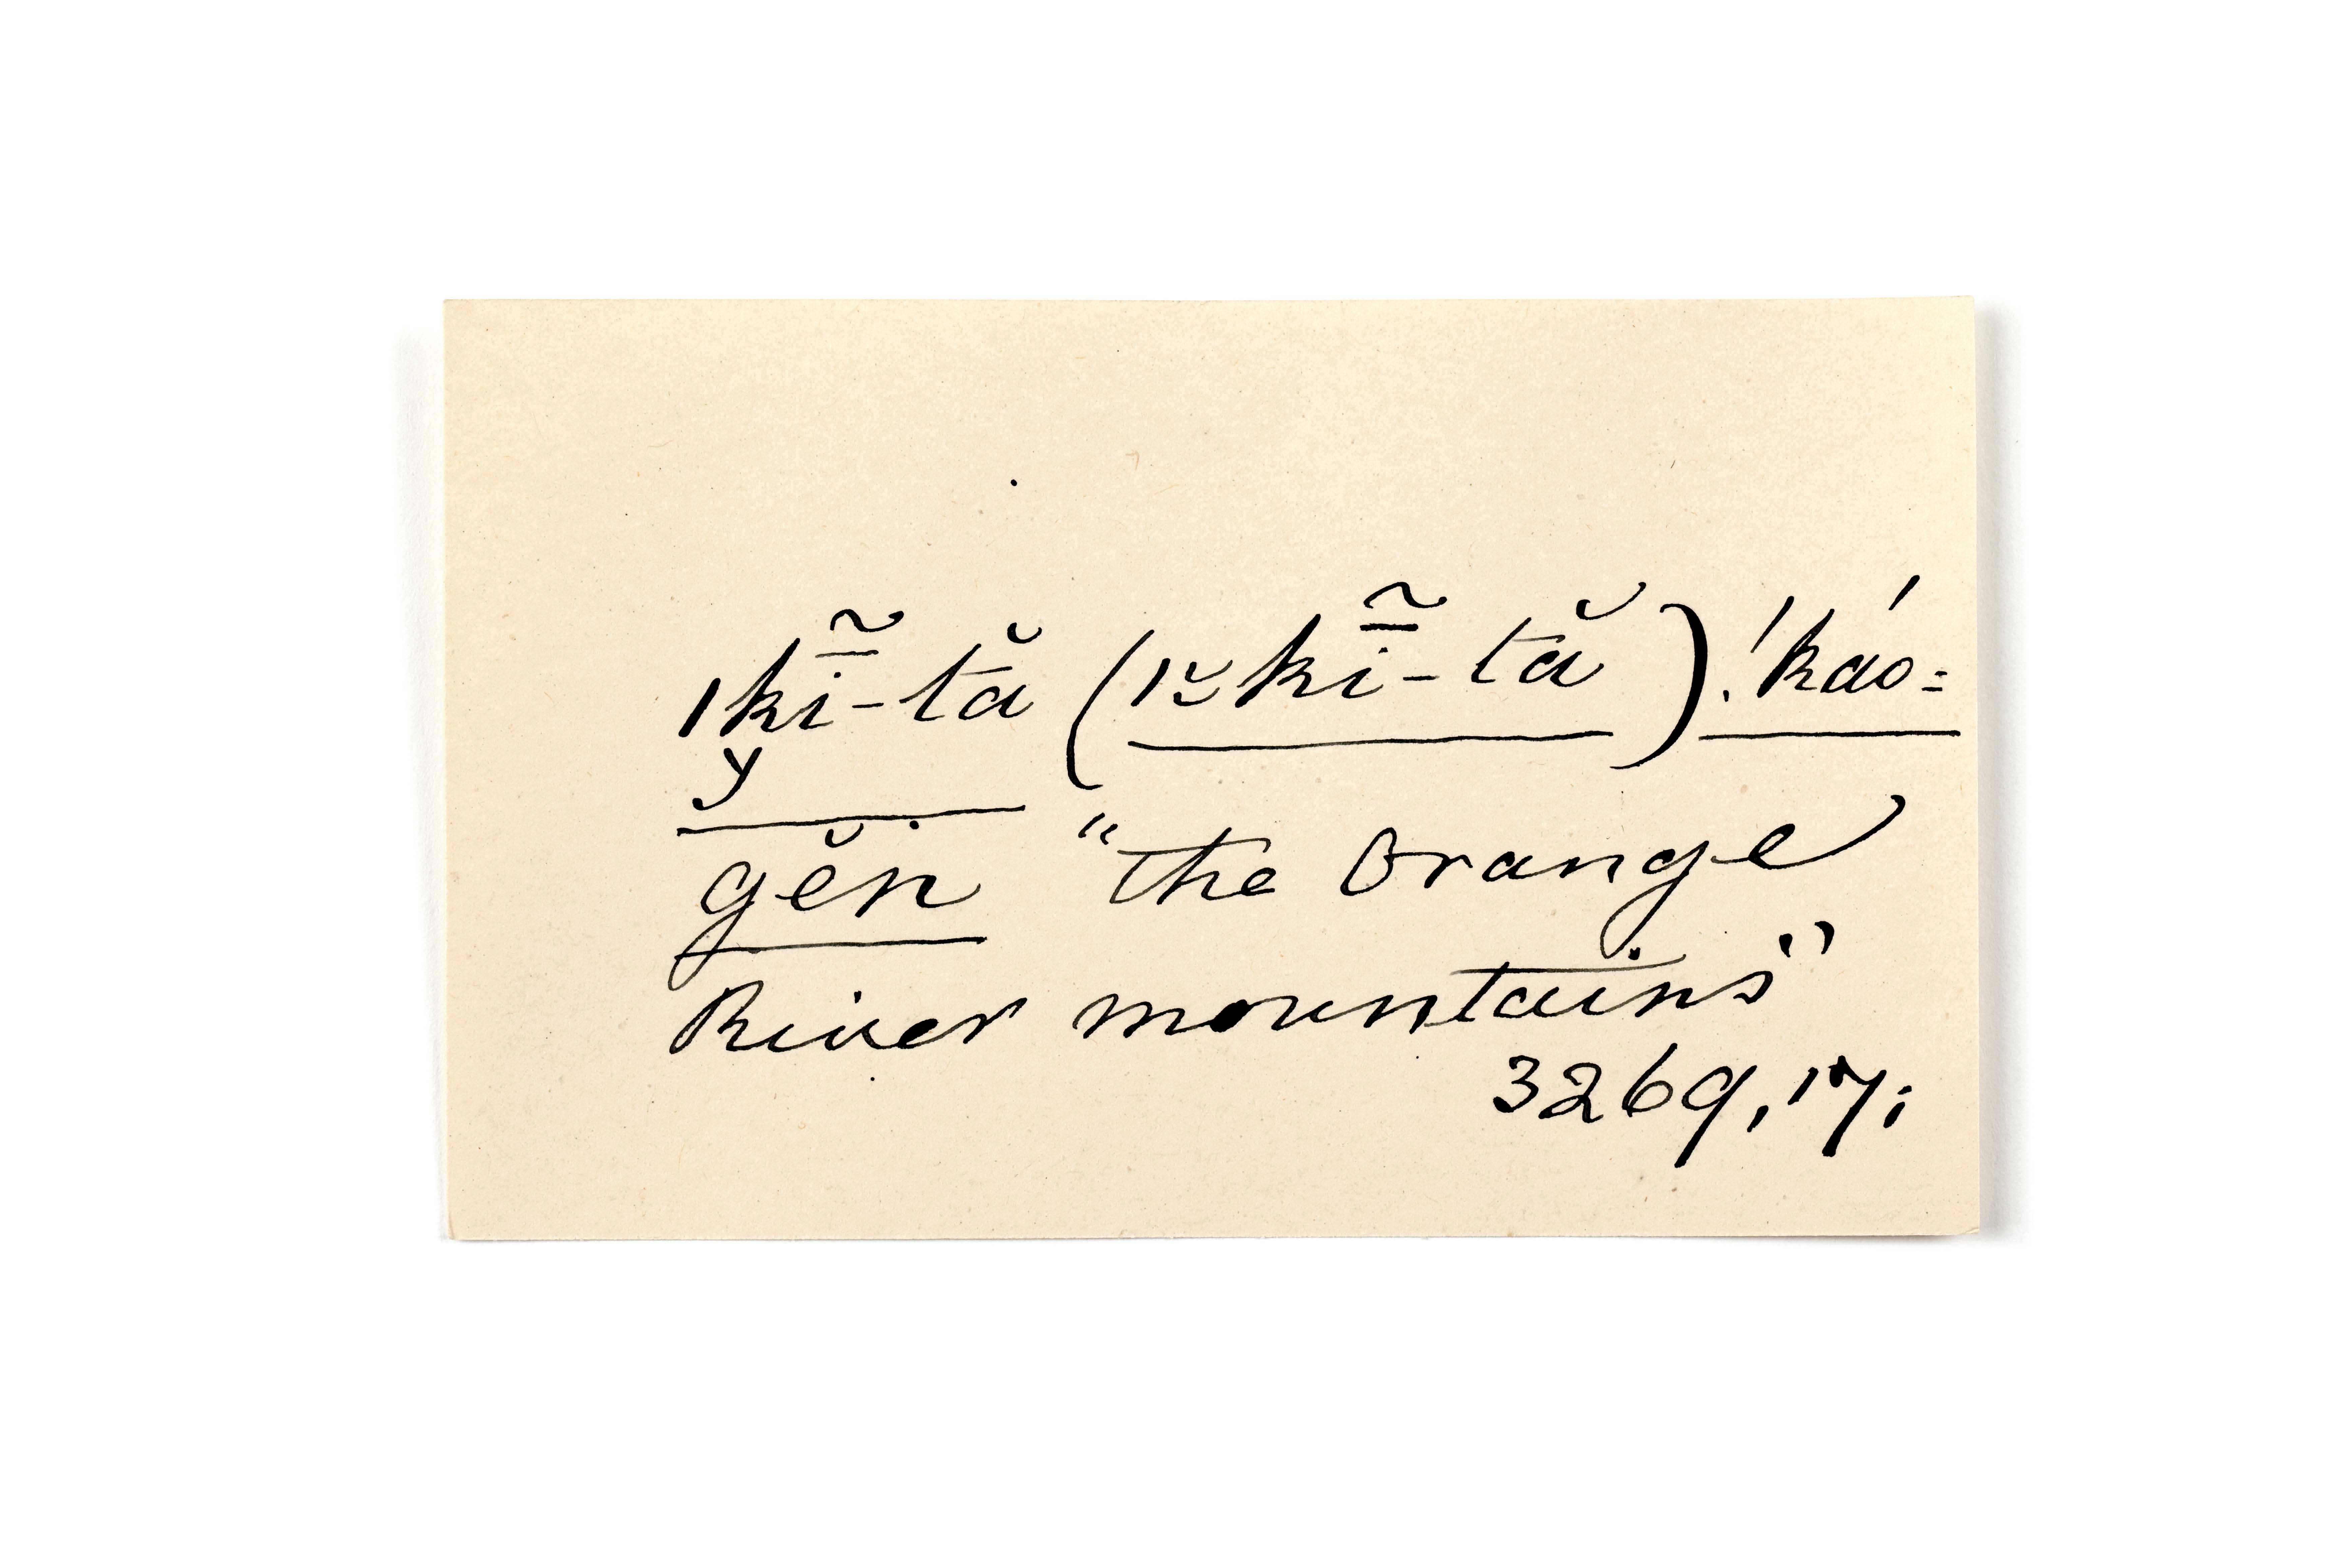 ǀkī̃-tă (ǀ˘kī̃-tă) !káo=
y
gĕn "the Orange
River mountains"
3269, 17;